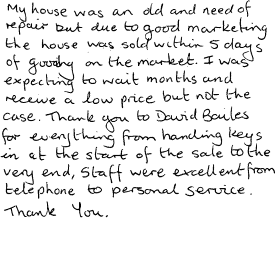 My house was an old and need of
repair but due to good marketing
the house was sold within 5 days
of going on the market. I was
expecting to wait months and
receive a low price but not the
case. Thank you to David Bailes
for everything from handing keys
in at the start of the sale to the
very end, Staff were excellent from
telephone to personal service.
Thank You.